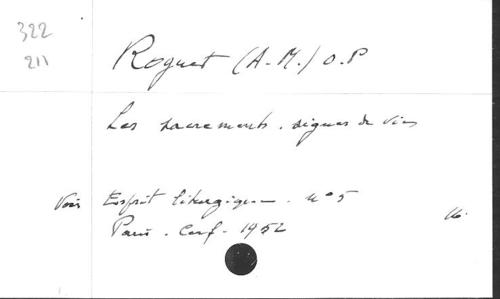 322
211
Roguet (A.-M.) O.P
Les sacrements. signes de vie
Voir Esprit liturgique. n° 5
Paris. Cerf. 1952
16.